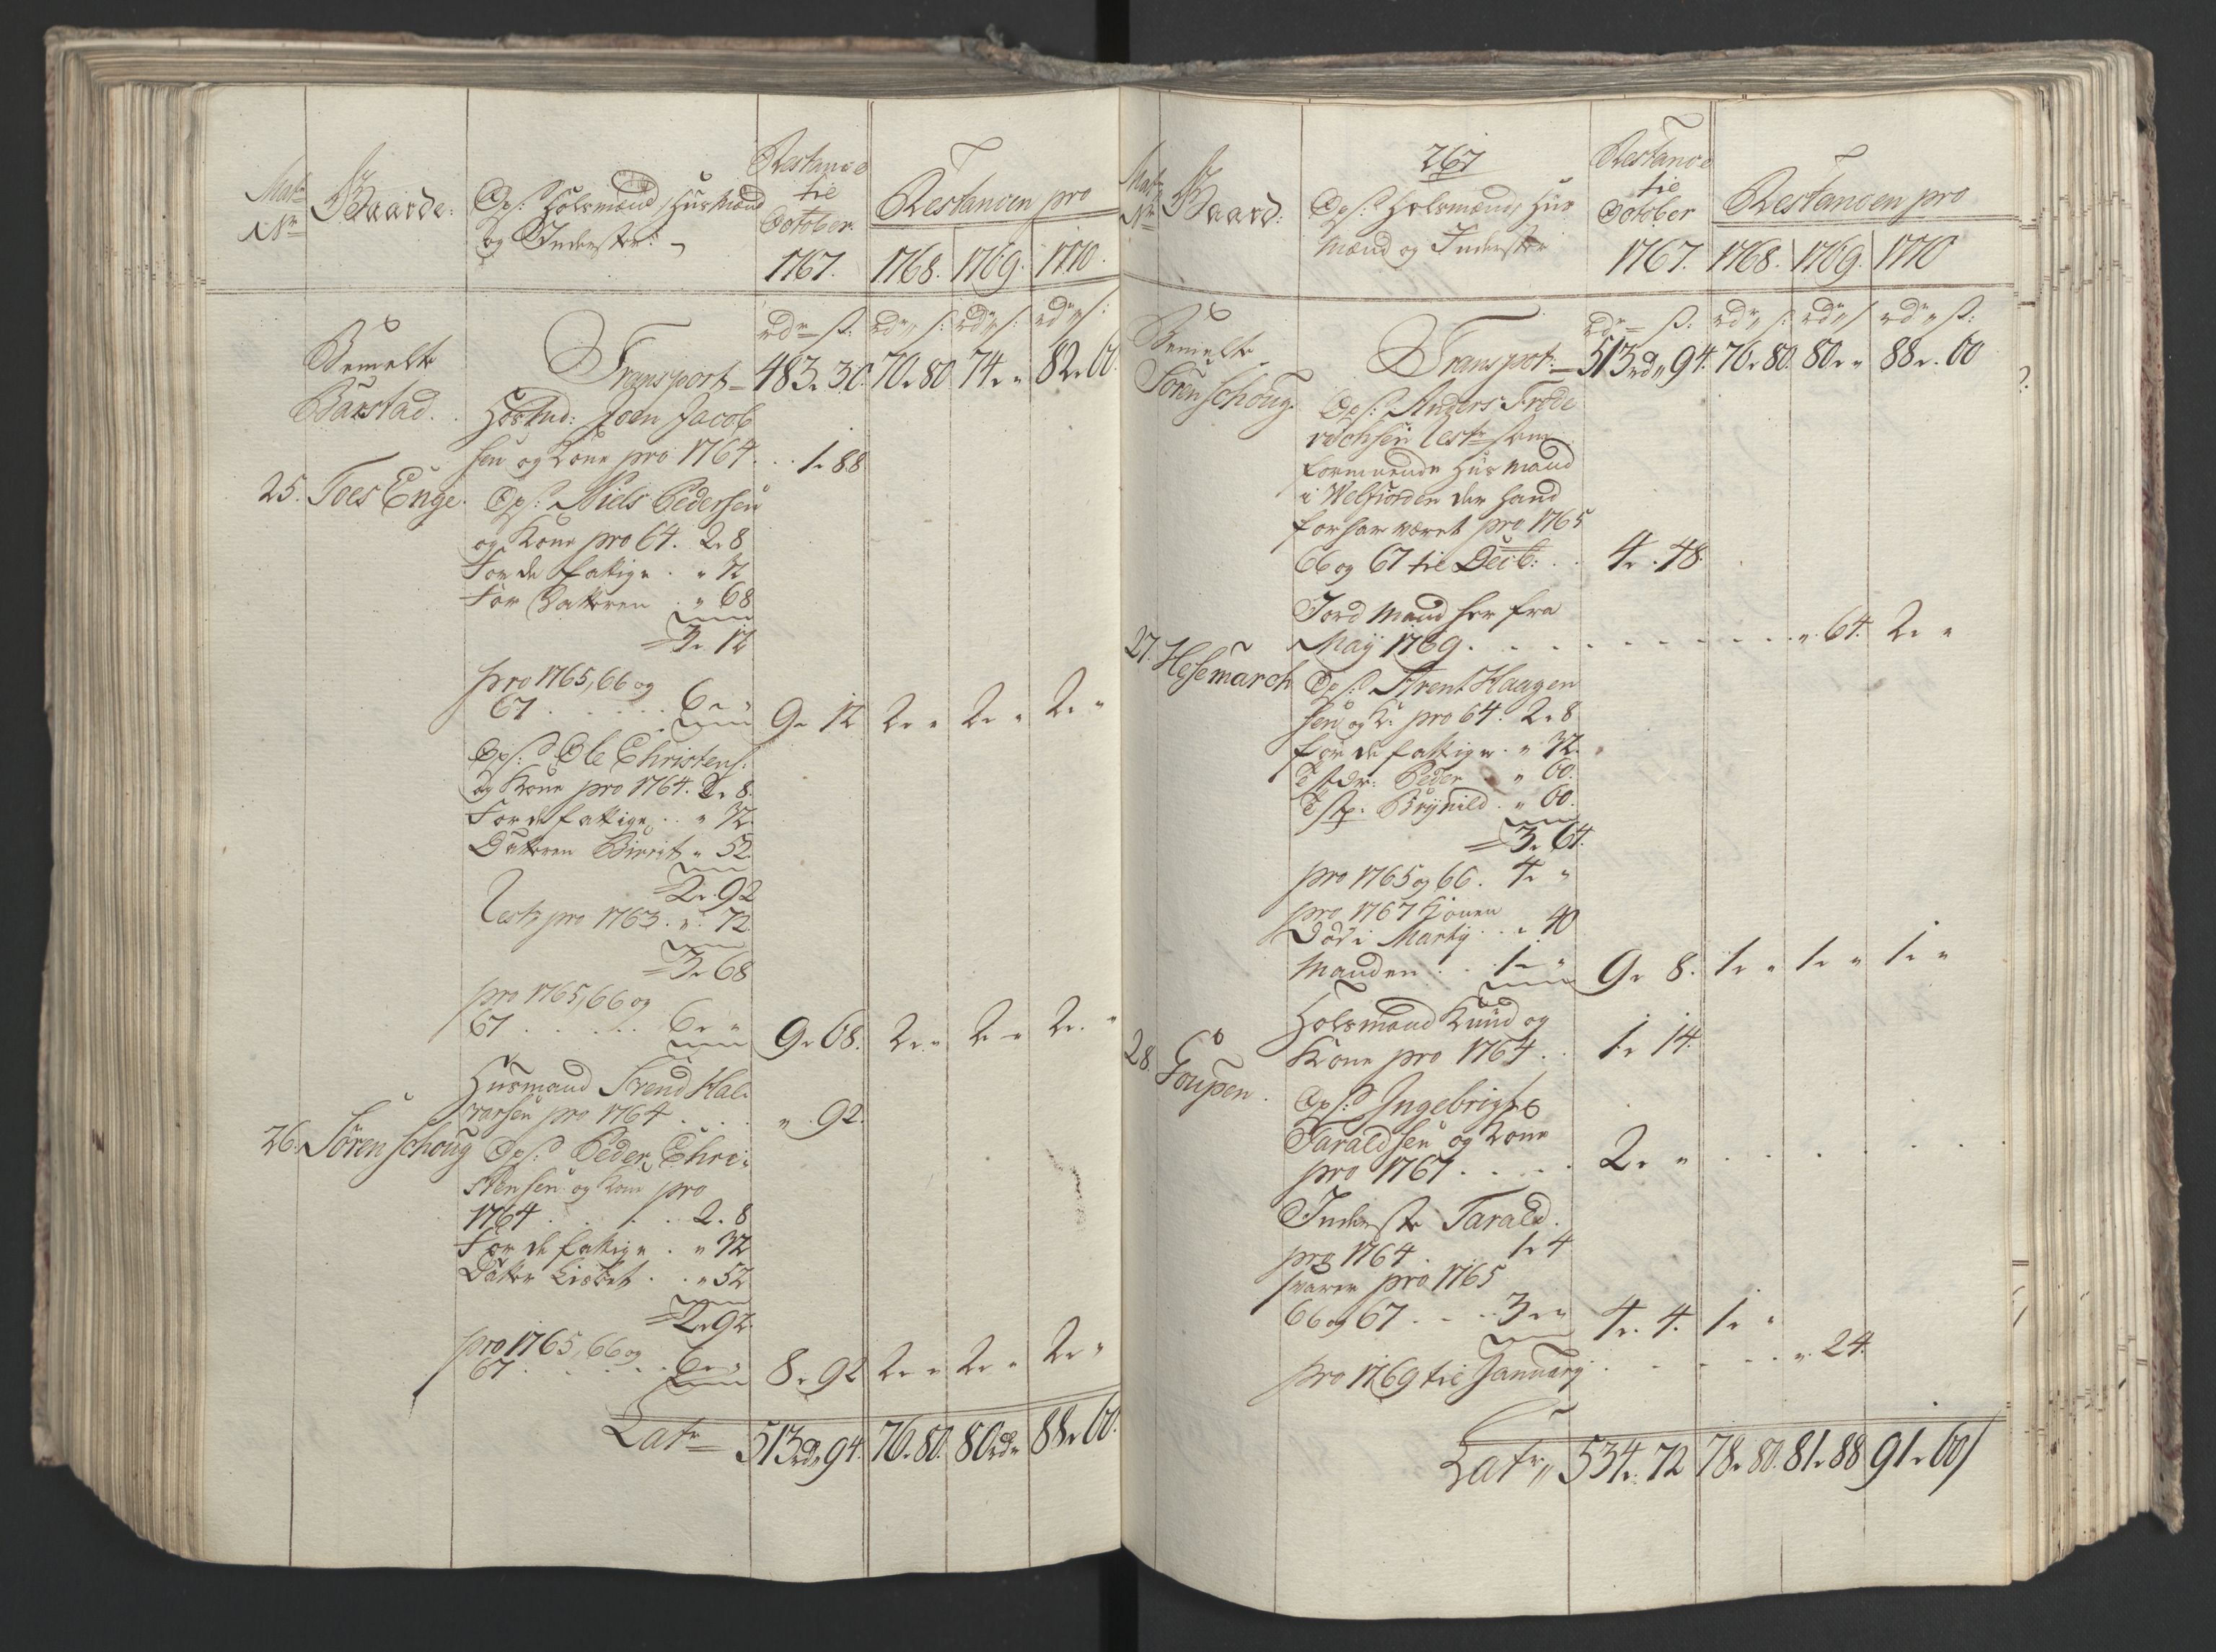 Mat: Nr
Gaarde:
Ops: Holsmænd, Huusmænd
og Inderster:
Restance
til
October
1767.
Restancen pro
1768. 1769. 1770.
rdr s: rdr s: rdr s: rdr s:
Bemelte
Barstad.
Transport 483. 30. 70. 80 74. " 82. 60.
Joen Jacob
sen og Kone pro 1764 . . 1. 88
25. Toes Enge.
Ops: Niels Pedersen
og Kone pro 64. 2. 8
For de fattige . " 32
For Datteren . " 68
3. 12
pro 1765, 66 og
67 . . . . 6. " 9. 12 2. " 2. " 2. "
Ops: Ole Christens:
og Kone pro 1764. 2. 8.
For de fattige . . " 32.
Datteren Birrit " 52.
2. 92
Rest pro 1763 . ". 72.
3. 68
pro 1765, 66 og
67 . . . . 6. " 9. 68. 2. " 2. " 2. "
Huusmand Trend Hal-
varsen pro 1764 . . . " . 92.
26. Sören schoug
Ops: Peder Chri-
stensen og Kone pro
1764 . . . . 2. 8
For de fattige . " 32
Datter Lisbet . . " 52
2. 92.
pro 1765, 66 og
67 . . . . 6. " 8. 92 2. " 2. " 2. "
Latr 513rdr 94. 76. 80. 80rdr " 88. 60.
267
Mat: Nr
Gaard:
Ops: Holsmænd, Huus
Mænd og Inderster
Restance
til
October
1767.
Restancen pro
1768. 1769. 1770
rdr s: rdr s: rdr s rdr s:
Bemelte
Sören schoug.
Transport: 513rdr 94. 76. 80. 80. " 88. 60
Ops: Anders Frede
richsen Rest som
formuende Huus mand
i Velfiorden der hand
forhar været pro 1765
66 og 67 til Decb: . . 4. 48.
Jord Mand her fra
Maÿ 1769 . . . . " 64. 2. "
27. Hesemarch
Ops: Arent Haagen
sen og K: pro 64. 2. 8
for de fattige . " 32.
Tstdr: Peder . " 60.
Tstp: Brÿnild . " 60.
3. 64.
pro 1765 og 66. 4. "
pro 1767 Konen
Död i Marty . . " 40
Manden . . 1. " 9. 8. 1. " 1. " 1. "
28. Goupen.
Holsmand Knud og
Kone pro 1764 . . 1. 14.
Ops: Ingebrigt
Taraldsen og Kone
pro 1767 . . . . 2. "
Inderste Tarald.
pro 1764 . . 1. 4
svarer pro 1765
66 og 67 . . . 3. " 4. 4. 1. "
pro 1769 til January . . . . " 24.
Latr " 534. 72 78. 80. 81. 88 91. 60